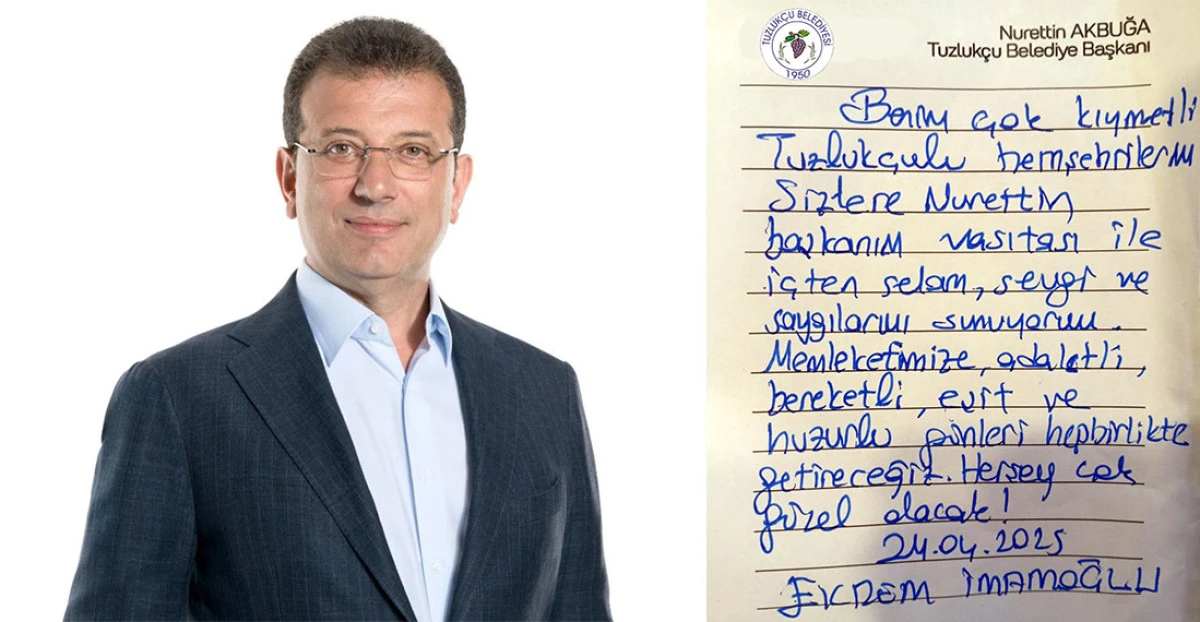 TUZLUKÇU BELEDİYESİ
1950
Nurettin AKBUĞA
Tuzlukçu Belediye Başkanı
Benim çok kıymetli
Tuzlukçulu hemşehrilerim
Sizlere Nurettin
başkanım vasıtası ile
içten selam, sevgi ve
saygılarımı sunuyorum.
Memleketimize, adaletli,
bereketli, eşit ve
huzurlu günleri hepbirlikte
getireceğiz. Herşey çok
güzel olacak!
24.04.2025
EKREM İMAMOĞLU